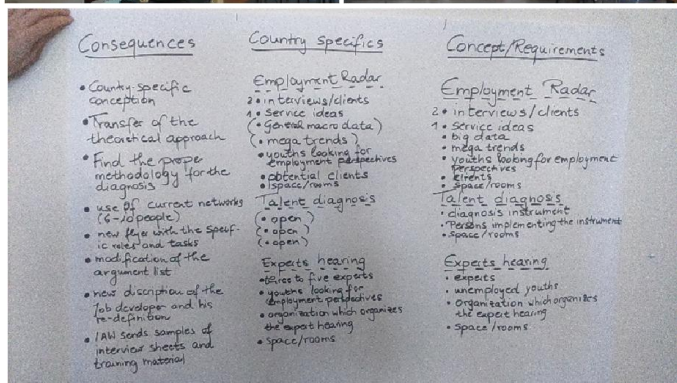 Consequences
• Country-specific
conception
• Transfer of the
theoretical approach
• Find the proper
methodology for the
diagnosis
• use of current networks
(6-10 people)
• new flyer with the specif-
ic roles and tasks
• modification of the
argument list
• new discription of the
job developer and his
re-definition
• IAW sends samples of
interview sheets and
training material
Country Specifics
Employment Radar
2 • interviews/clients
1 • Service ideas
(• General macro data)
(• mega trends)
• youths looking for
employment perspectives
• potential clients
• space/rooms
Talent diagnosis
(• open)
(• open)
(• open)
Experts hearing
• three to five experts
• youths looking for
employment perspectives
• organization which organizes
the expert hearing
• space/rooms
Concept/Requirements
Employment Radar
2 • interviews/clients
1 • Service ideas
• big data
• mega trends
• youths looking for employment
perspectives
• clients
• space/rooms
Talent diagnosis
• diagnosis instrument
• Persons implementing the instrument
• space/rooms
Experts hearing
• experts
• unemployed youths
• Organization which organizes
the expert hearing
• space/rooms